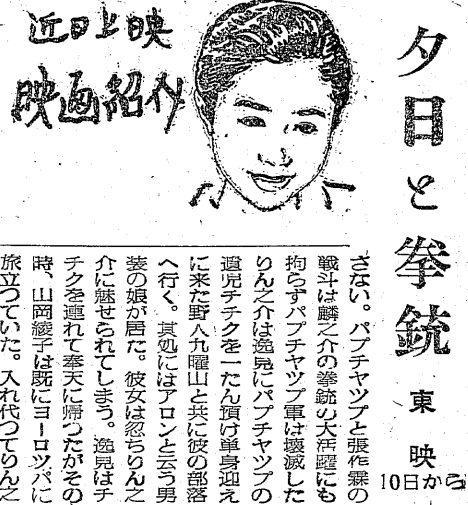 近日上映
映画紹介
夕日と拳銃
東映
10日から
さない。パプチヤツプと張作霖の
戦斗は麟之介の拳銃の大活躍にも
拘らずパプチヤツプ軍は壊滅した
りん之介は逸見にパプチヤツプの
遺児チチクを一たん預け単身迎え
に来た野人九曜山と共に彼の部落
へ行く。其処にはアロンと云う男
装の娘が居た。彼女は忽ちりん之
介に魅せられてしまう。逸見はチ
チクを連れて奉天に帰つたがその
時、山岡綾子は既にヨーロツパに
旅立つていた。入れ代つてりん之